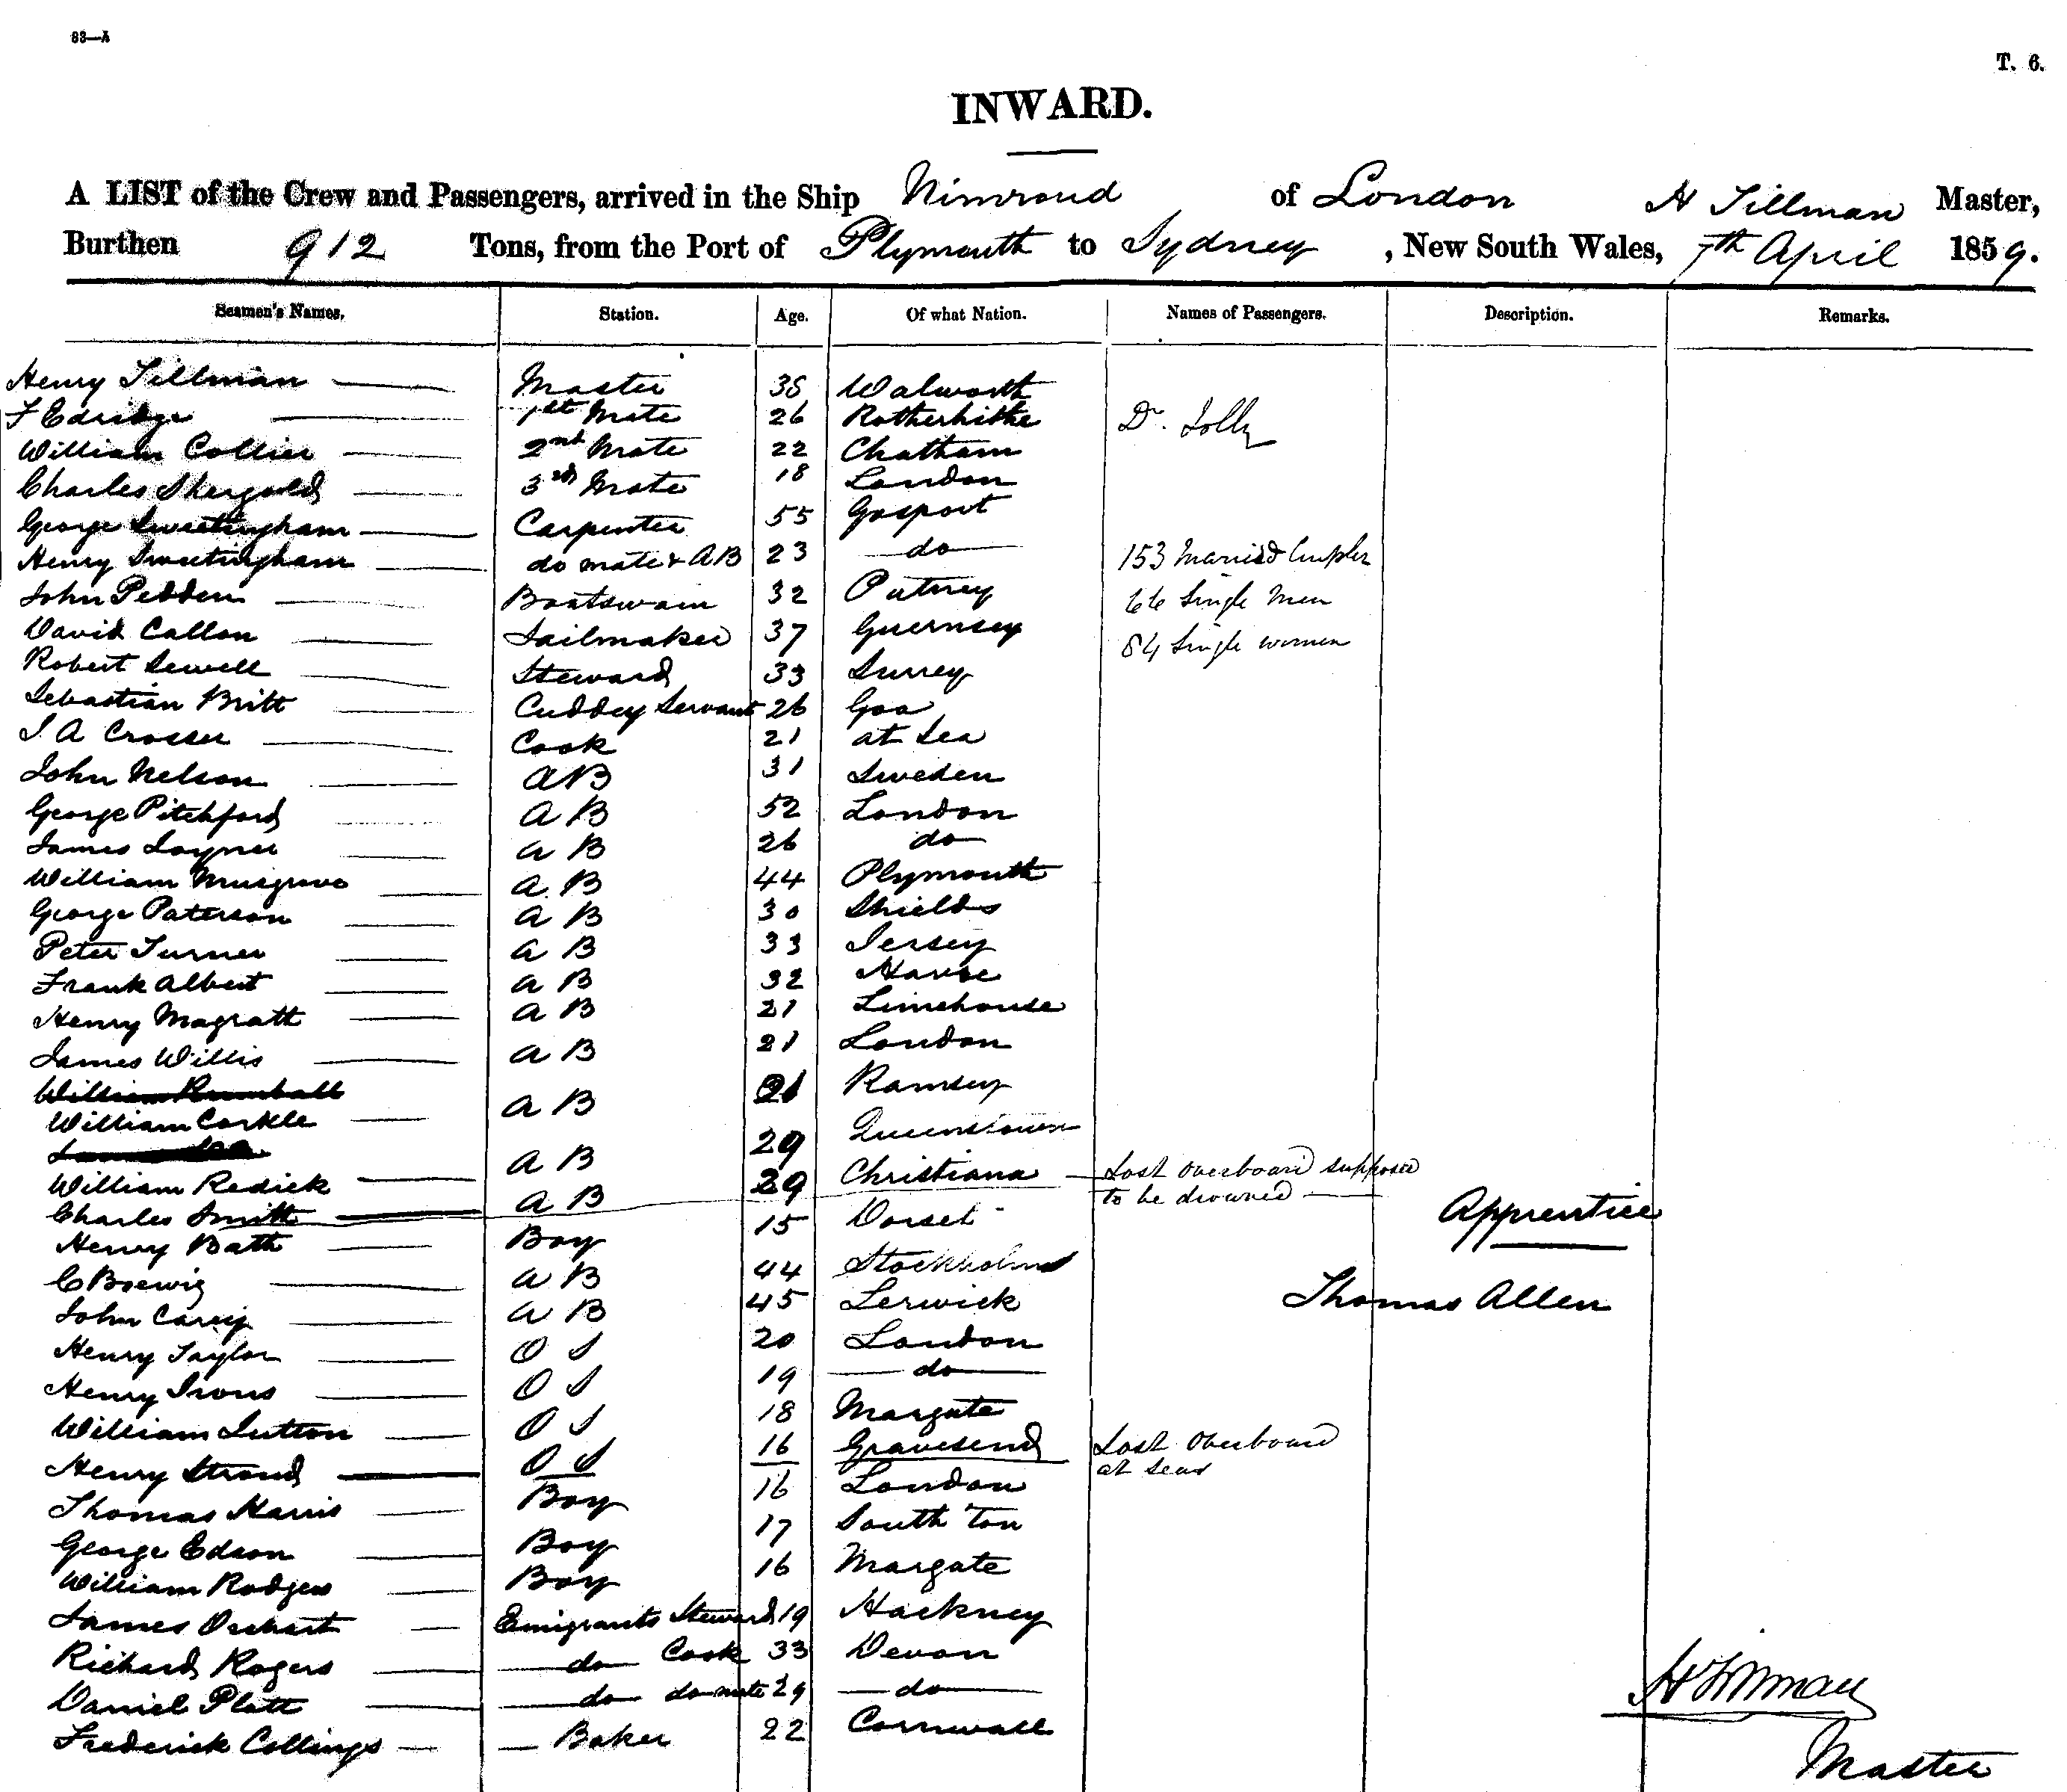 83—A
T. 6.
INWARD.
A LIST of the Crew and Passengers, arrived in the Ship Nimroud of London H Tillman Master,
Burthen 912 Tons, from the Port of Plymouth to Sydney, New South Wales, 7th April 1859.
Seamen's Names. Station. Age. Of what Nation. Names of Passengers. Description. Remarks.
Henry Tillman Master 38 Walworth
F Edridge 1st Mate 26 Rotherhithe Dr. Jolly
William Collier 2nd Mate 22 Chatham
Charles Shergold 3rd Mate 18 London
George Sweetingham Carpenter 55 Gosport
Henry Sweetingham do mate & AB 23 do 153 Married Couples
John Pedden Boatswain 32 Putney 66 Single Men
David Callon Sailmaker 37 Guernsey 84 Single women
Robert Sewell Steward 33 Surrey
Sebastian Britt Cuddey Servant 26 Goa
J. A Crosser Cook 21 at Sea
John Nelson AB 31 Sweden
George Pitchford A B 52 London
James Joyner A B 26 do
William Musgrove A.B 44 Plymouth
George Paterson A B 30 Shields
Peter Turner A B 33 Jersey
Frank Albert A B 32 Havre
Henry Magratt A B 21 Limehouse
James Willis A B 21 London
William Rumball
William Corkle A B 21 Ramsey
William Redick A B 29 Queenstown
Charles Smith A B 29 Christiana Lost overboard supposed
to be drowned
Henry Bath Boy 15 Dorset Apprentice
C Brewig A B 44 Stockholm
John Carey A B 45 Lerwick Thomas Allen
Henry Taylor O S 20 London
Henry Irons O S 19 do
William Sutton O S 18 Margate
Henry Stroud O S 16 Gravesend Lost overboard
at sea
Thomas Harris Boy 16 London
George Edson Boy 17 South Ton
William Rodgers Boy 16 Margate
James Orchart Emigrants Steward 19 Hackney
Richard Rogers do Cook 33 Devon
Daniel Platt do do mate 29 do
Frederick Collings Baker 22 Cornwall
H Tillman
Master